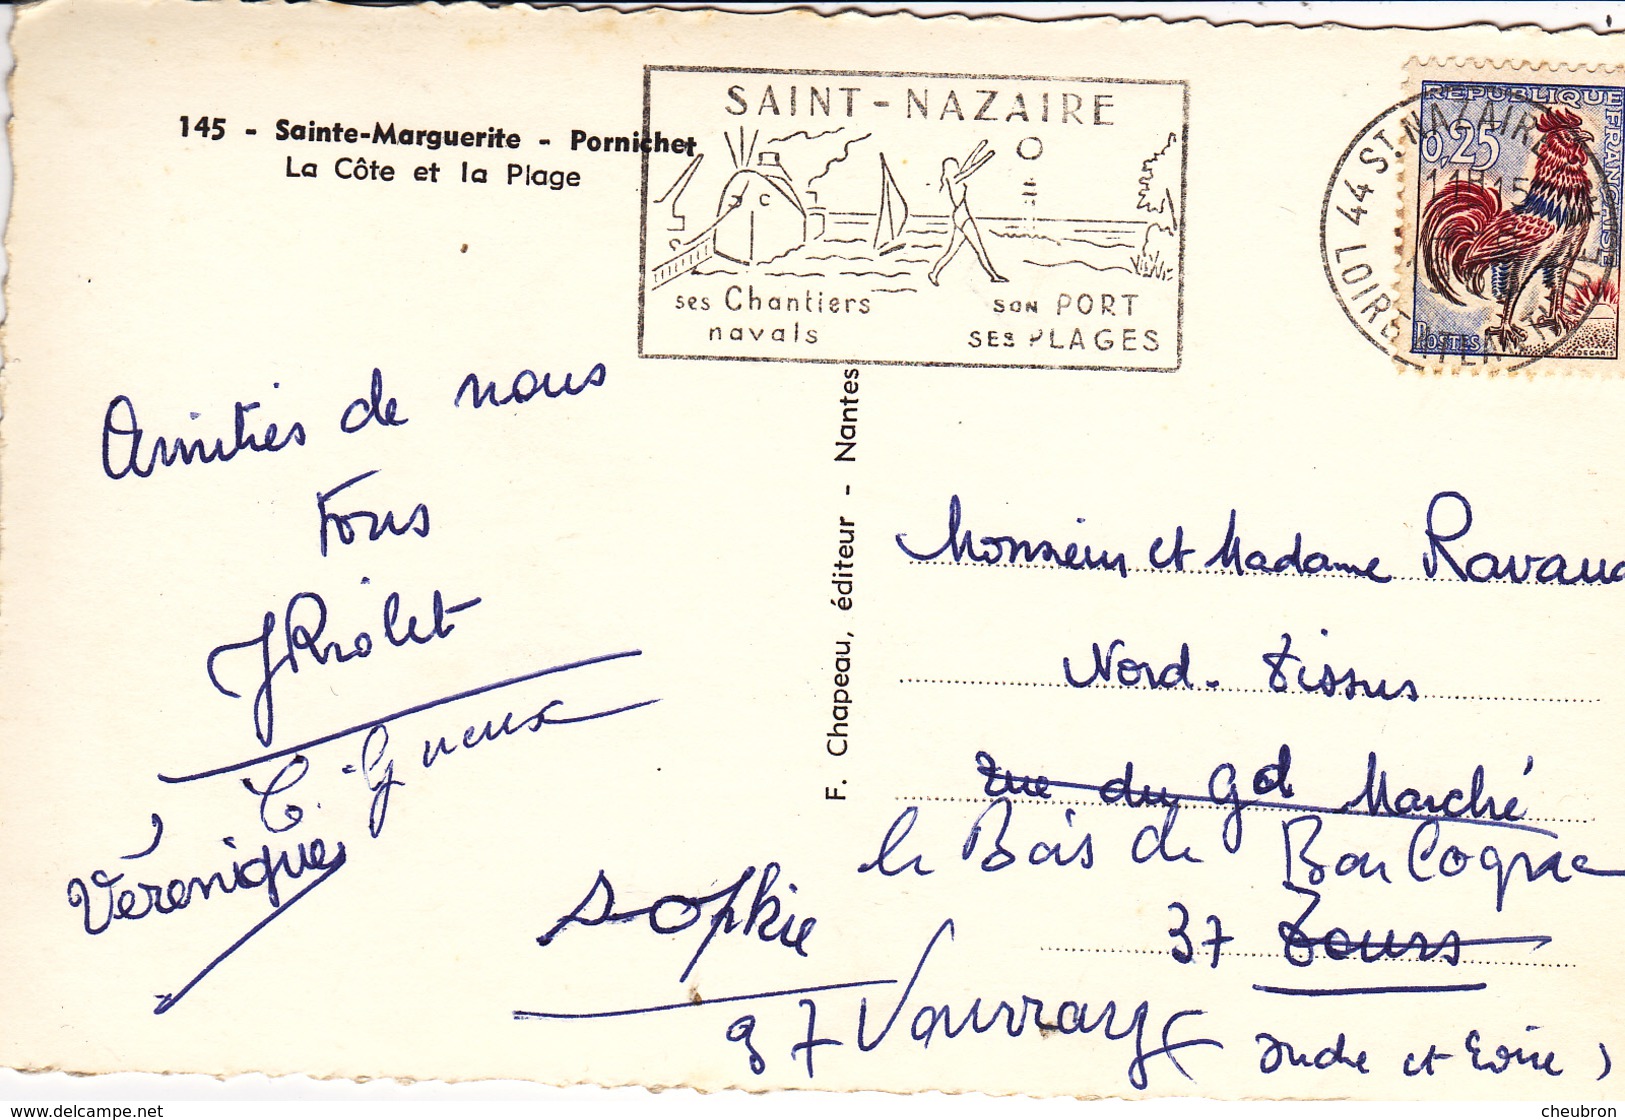 145 - Sainte-Marguerite - Pornichet
La Côte et la Plage
SAINT-NAZAIRE
ses Chantiers
navals
SON PORT
SES PLAGES
RÉPUBLIQUE FRANÇAISE
0,25
POSTES
DECARIS
44 ST. NAZAIRE
11H15
LOIRE ATLANTIQUE
Amitiés de nous
Tous
JRiolet
C. Gueux
Véronique
Sophie
F. Chapeau, éditeur - Nantes
Monsieur et Madame Ravaud
Nord-Tissus
rue du Gd Marché
le Bois de Boulogne
37 Tours
37 Vouvray
(Indre et Loire)
http://www.delcampe.net
cheubron